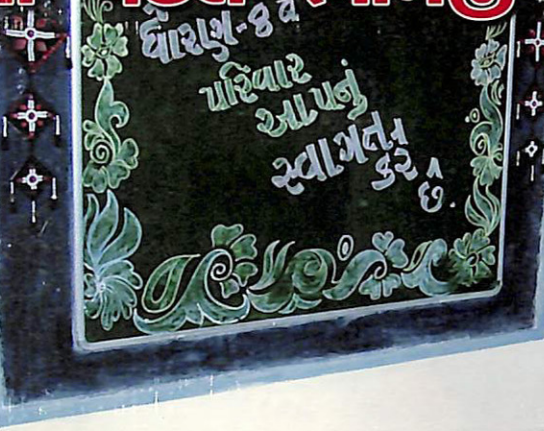 ધોરણ-8 વ
પરિવાર
આપનું
સ્વાગત
કરે છે.